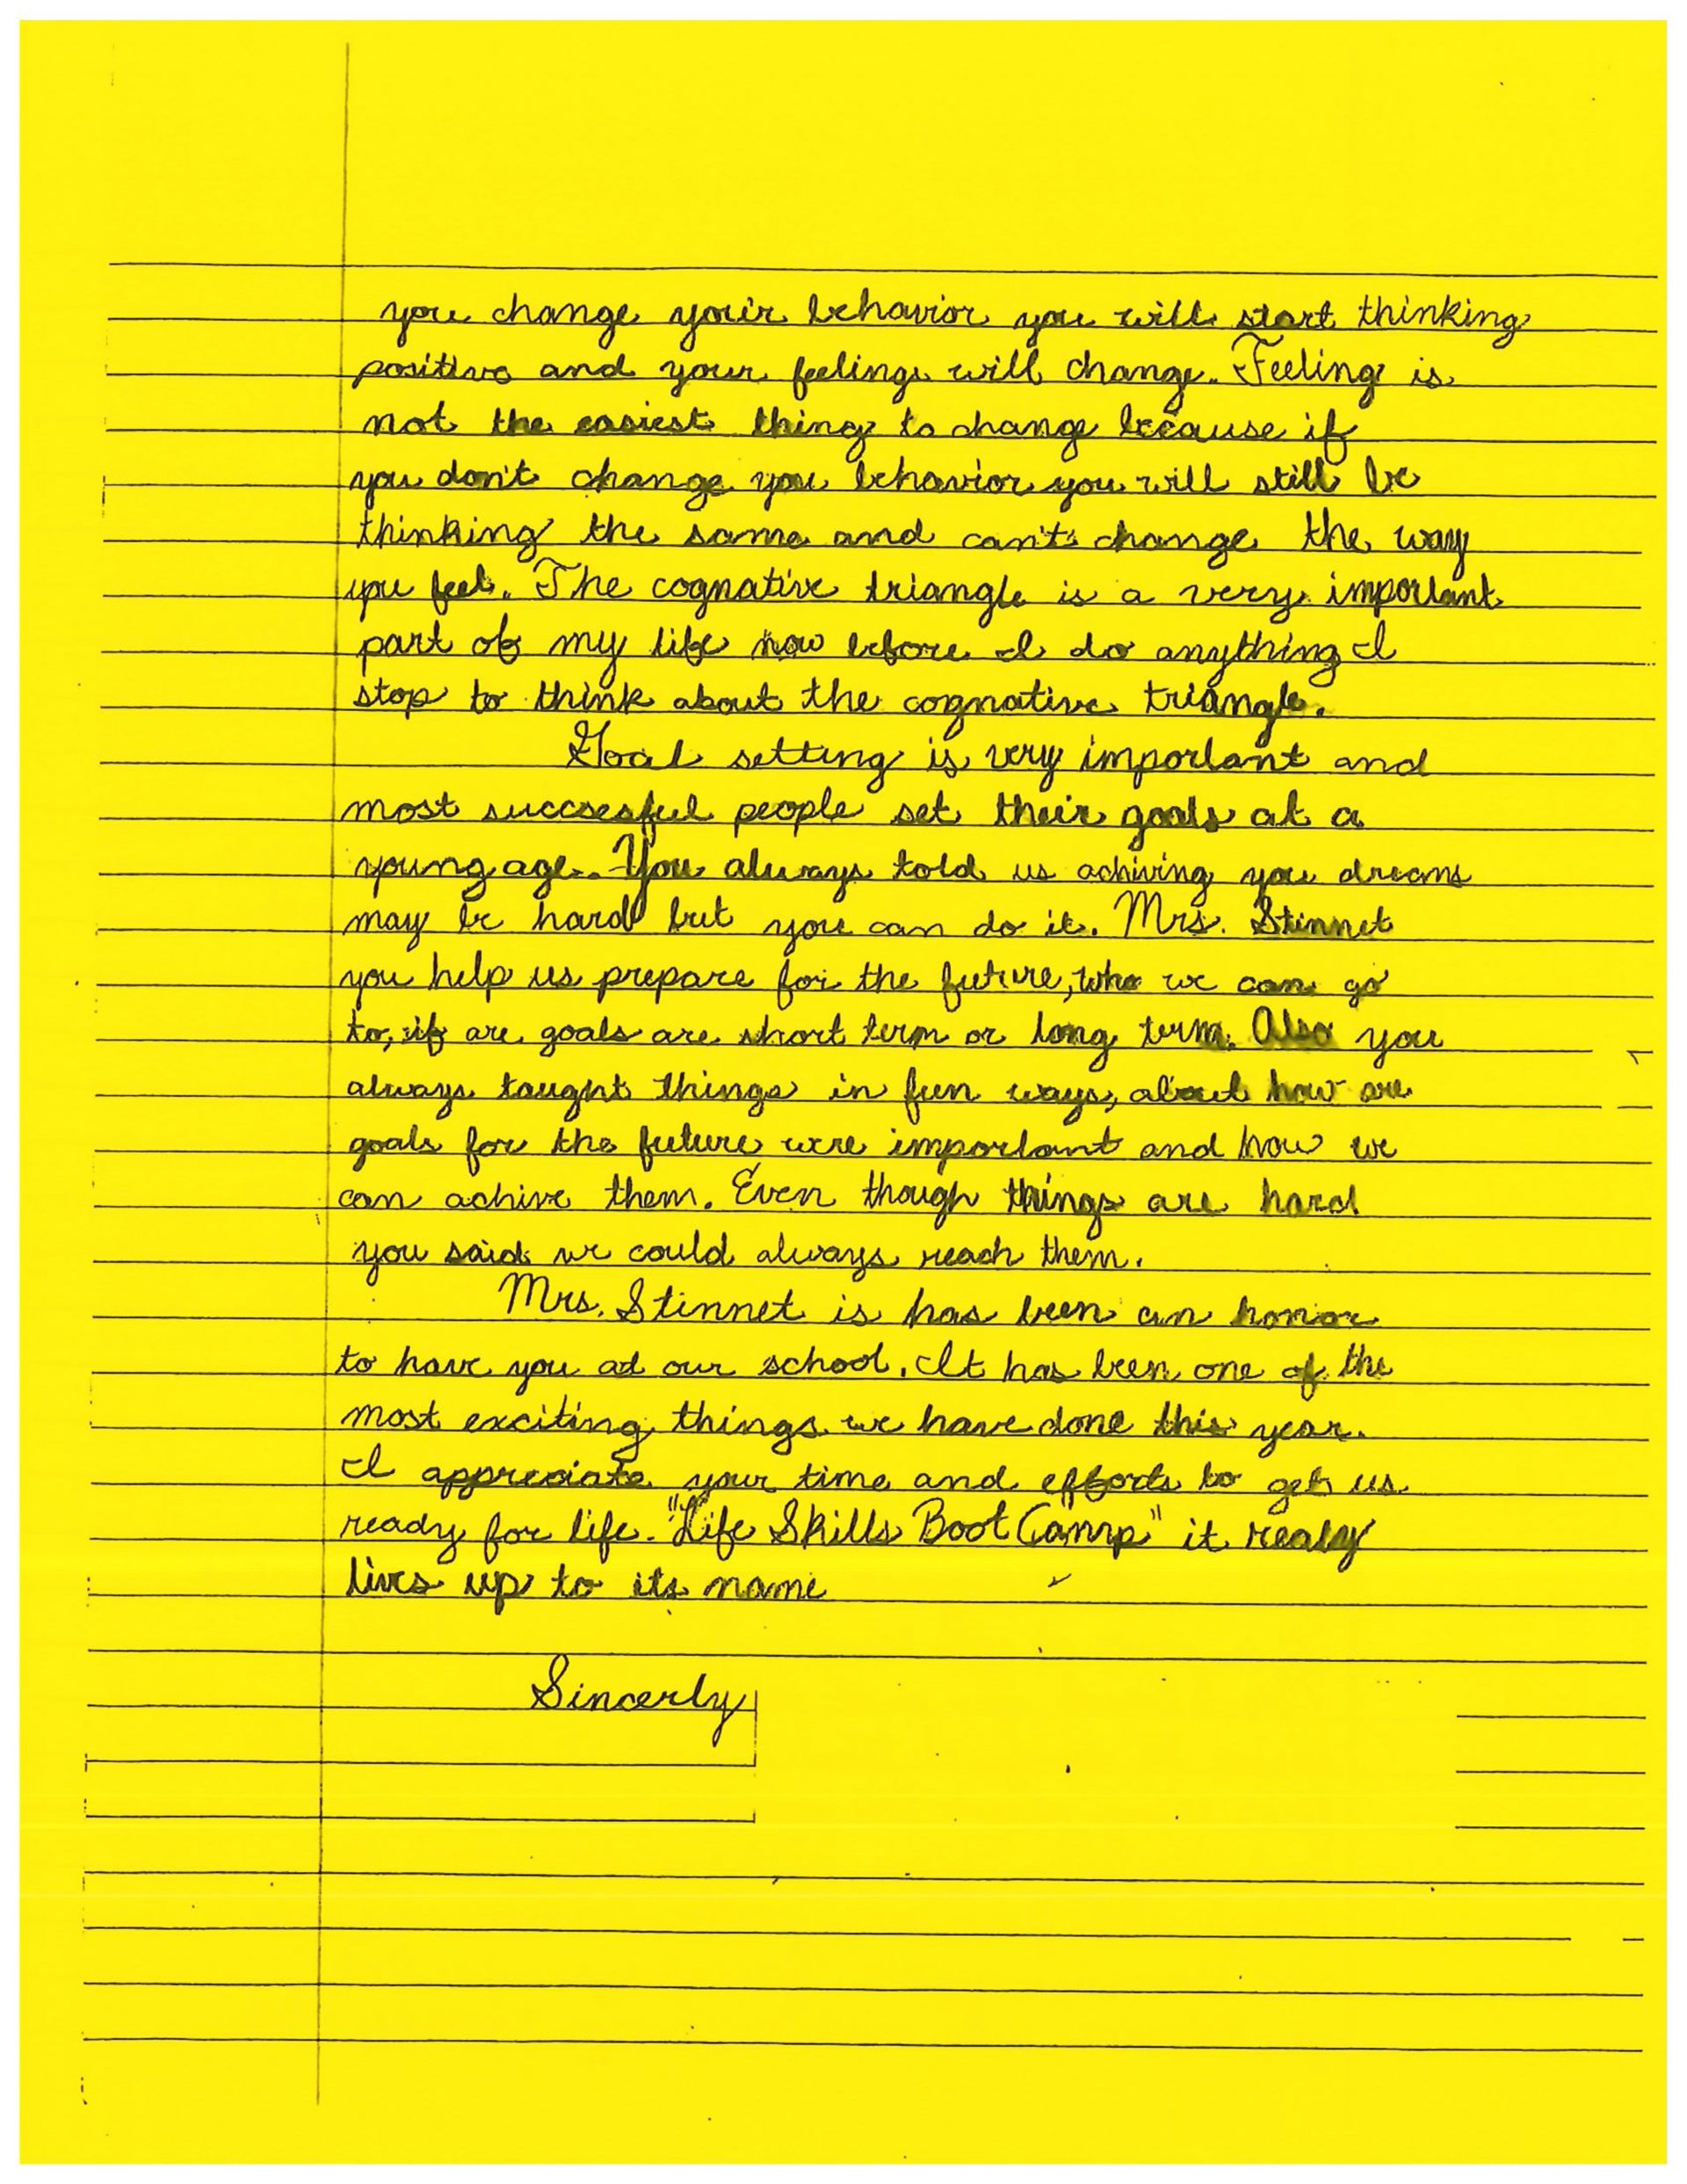 you change your behavior you will start thinking
positive and your feelings will change. Feeling is
not the easiest thing to change because if
you don't change you behavior you will still be
thinking the same and can't change the way
you feel. The cognative triangle is a very important
part of my life now before I do anything I
stop to think about the cognative triangle.
Goal setting is very important and
most succsesful people set their goals at a
young age. You always told us achiving you dreams
may be hard but you can do it. Mrs. Stinnet
you help us prepare for the future, who we can go
to, if are goals are short term or long term. Also you
always taught things in fun ways, about how are
goals for the future were important and how we
can achive them. Even though things are hard
you said we could always reach them.
Mrs. Stinnet is has been an honor
to have you at our school. It has been one of the
most exciting things we have done this year.
I appreciate your time and efforts to get us
ready for life. "Life Skills Boot Camp" it realy
lives up to its name
Sincerly